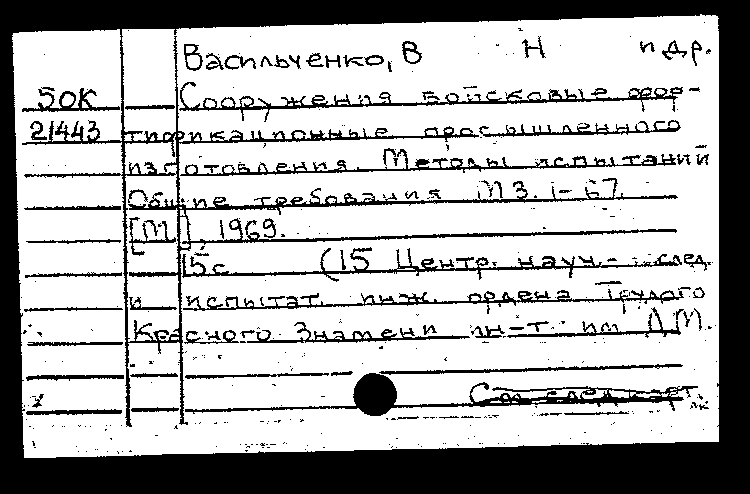 Васильченко, В Н и др.
50К Сооружения войсковые фор-
21443 тификационные промышленного
изготовления. Методы испытаний
Общие требования МЗ. 1-67.
[М], 1969.
15с (15 Центр. науч.- след.
и испытат. инж. ордена Трудого
Красного Знамени ин-т им Д.М.
См. след. карт.